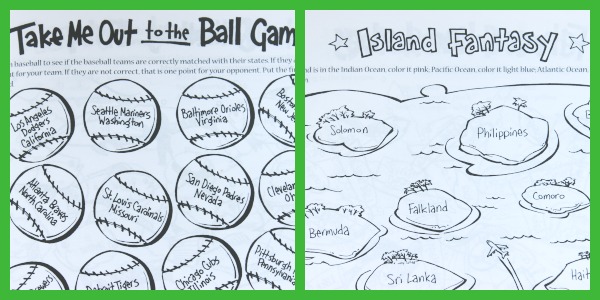 Take Me Out to the Ball Gam
baseball to see if the baseball teams are correctly matched with their states. If they a
t for your team. If they are not correct, that is one point for your opponent. Put the fi
Los Angeles
Dodgers
California
Seattle Mariners
Washington
Baltimore Orioles
Virginia
Atlanta Braves
North Carolina
St. Louis Cardinals
Missouri
San Diego Padres
Nevada
Clevelan
Oh
Detroit Tigers
Chicago Cubs
Illinois
Pittsburgh
Pennsylvania
Island Fantasy
nd is in the Indian Ocean, color it pink; Pacific Ocean, color it light blue; Atlantic Ocean,
Solomon
Philippines
Falkland
Comoro
Bermuda
Sri Lanka
Hait